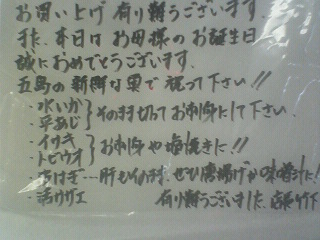 お買い上げ 有り難うございます。
また、本日は お母様の お誕生日
誠におめでとうございます。
五島の新鮮な魚で祝って下さい!!
・水いか
・平あじ } そのまま切って お刺身にして下さい。
・イサキ
・トビウオ } お刺身や塩焼きに!!
はぎ…肝も ぜひ唐揚げか味噌汁に!
・活サザエ 有り難うございました。店長 竹下